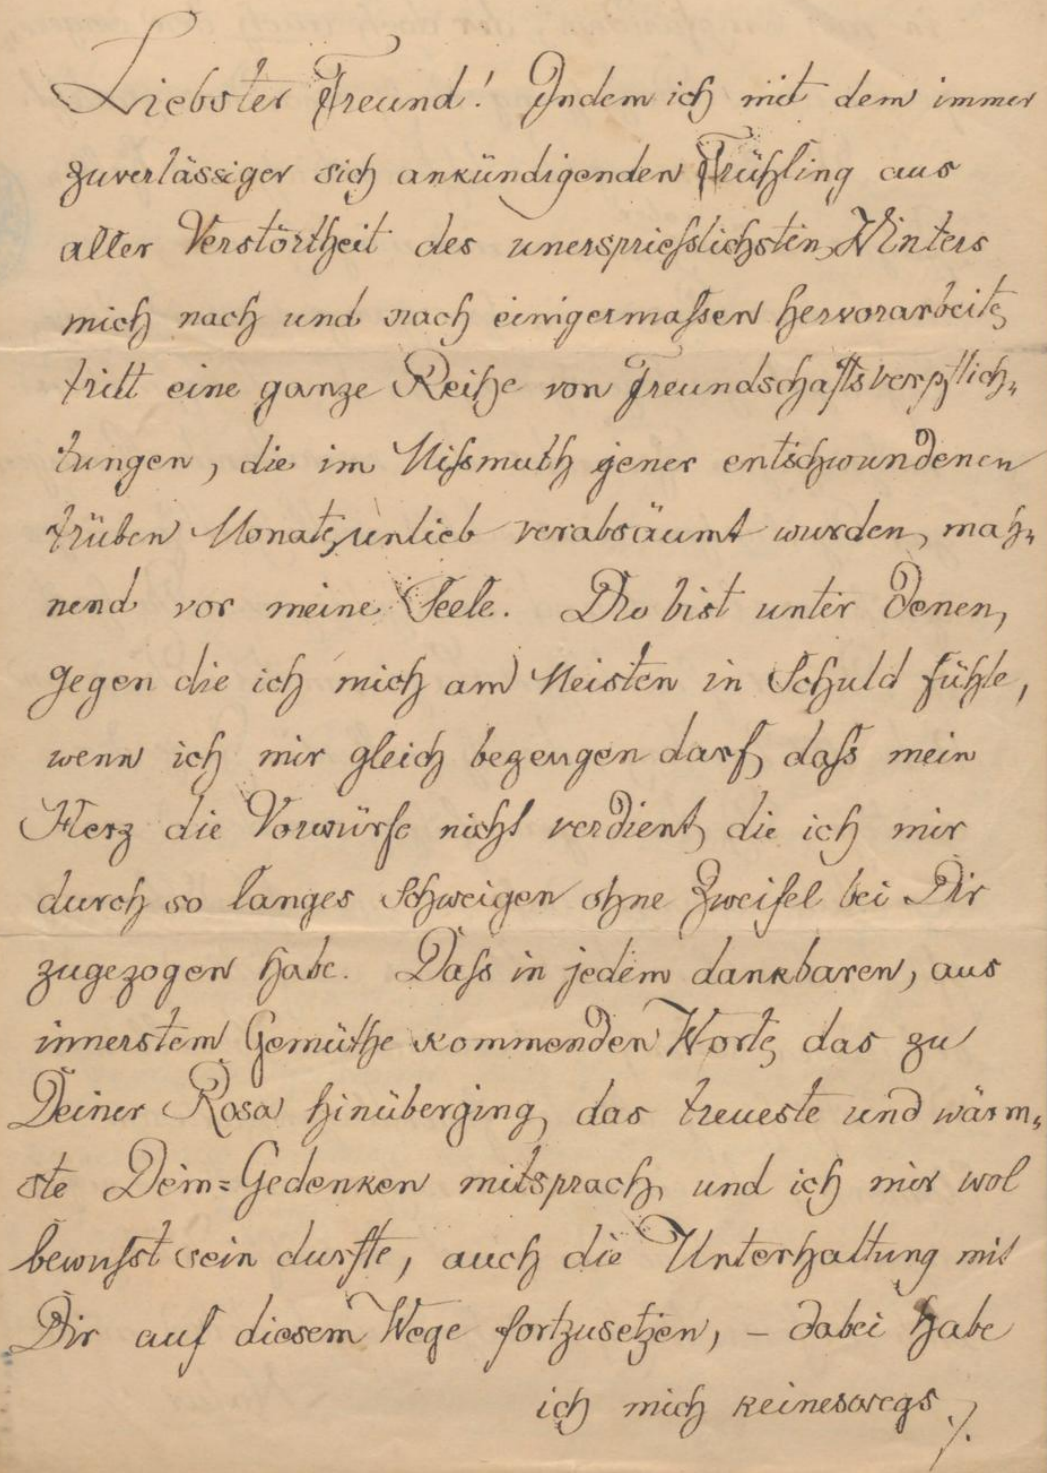 Liebster Freund! Indem ich mit dem immer
zuverlässiger sich ankündigenden Frühling aus
aller Verstörtheit des unersprießlichsten Winters
mich nach und nach einigermaßen hervorarbeite,
tritt eine ganze Reihe von Freundschaftsverpflich-
tungen, die im Mißmuth jener entschwundenen
trüben Monate, unlieb verabsäumt wurden, mah-
nend vor meine Seele. Du bist unter Denen,
gegen die ich mich am Meisten in Schuld fühle,
wenn ich mir gleich bezeugen darf, daß mein
Herz die Vorwürfe nicht verdient, die ich mir
durch so langes Schweigen ohne Zweifel bei Dir
zugezogen habe. Daß in jedem dankbaren, aus
innerstem Gemüthe kommenden Worte, das zu
Deiner Rosa hinüberging, das treueste und wärm-
ste Dein=Gedenken mitsprach, und ich mir wol
bewußt sein durfte, auch die Unterhaltung mit
Dir auf diesem Wege fortzusetzen, – dabei habe
ich mich keineswegs ./.